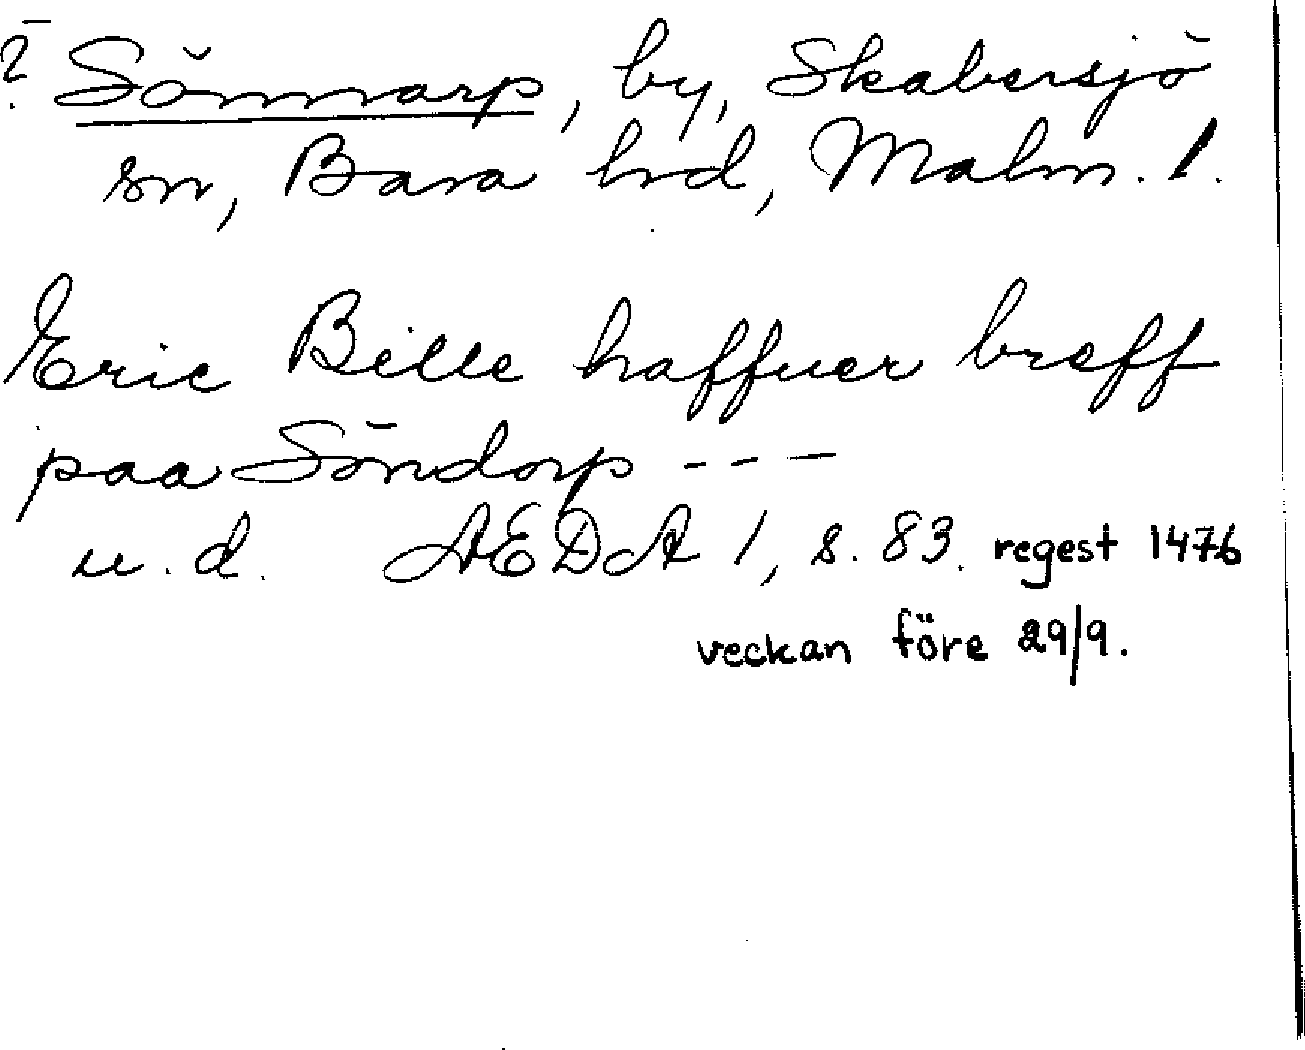 ? Sönnarp, by, Skabersjö
sn, Bara hd, Malm. l.
Eric Bille haffuer breff
paa Söndorp ---
u. d. AEDA 1, s. 83. regest 1476
veckan före 29/9.